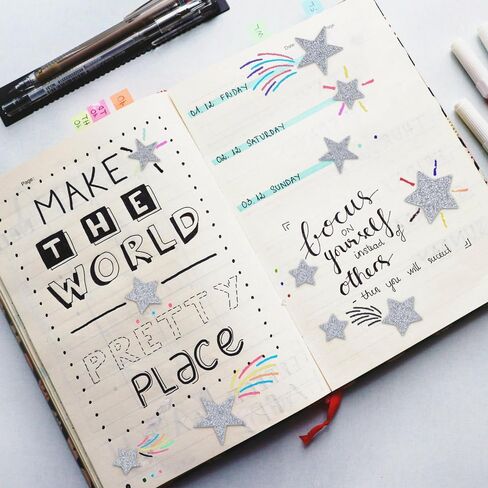 Page:
MAKE
THE
WORLD
PRETTY
PLACE
Date:
01. 12 FRIDAY
02. 12 SATURDAY
03. 12 SUNDAY
focus
on
yourself
instead of
others
then you will succeed